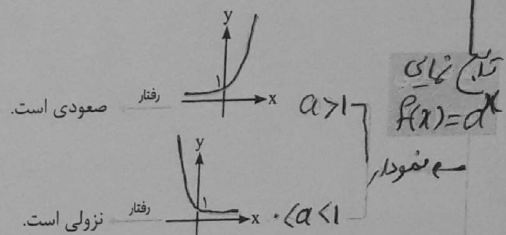 تابع نمایی
f(x)=a^x
نمودار
a>1
y
۱
x
رفتار
صعودی است.
۰<a<1
y
۱
x
رفتار
نزولی است.